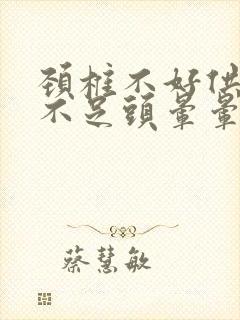 頚椎不好供
不足頭暈暈
蔡慧敏